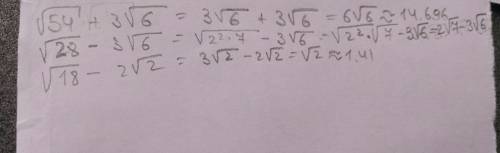 √54 + 3√6 = 3√6 + 3√6 = 6√6 ≈ 14.696
√28 - 3√6 = √2²·7 - 3√6 = √2²·√7 - 3√6 = 2√7 - 3√6
√18 - 2√2 = 3√2 - 2√2 = √2 ≈ 1.41